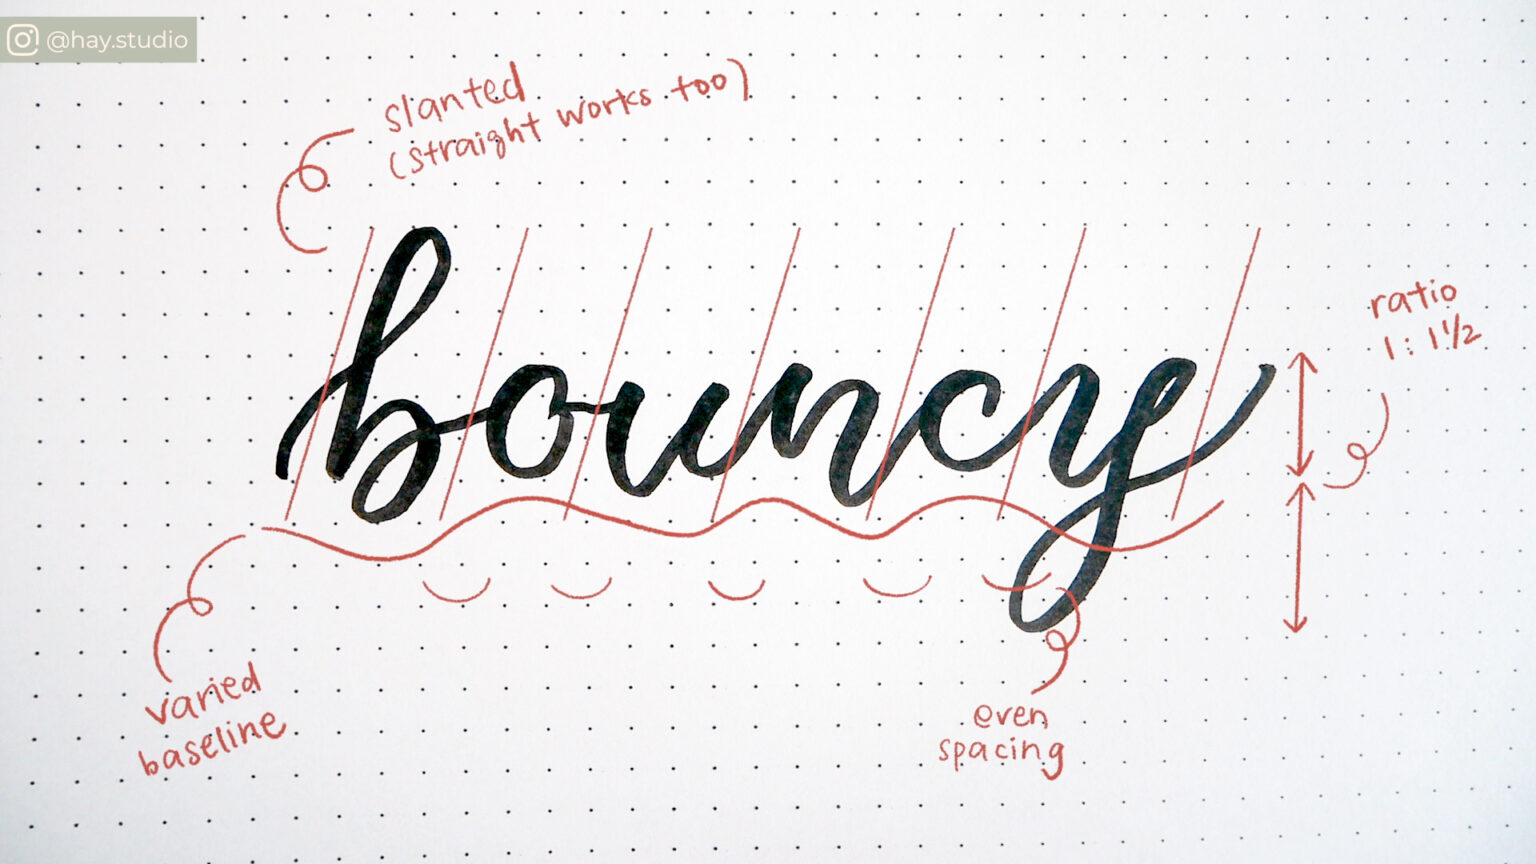 @hay.studio
slanted
(straight works too)
bouncy
ratio
1 : 1 1/2
varied
baseline
even
spacing